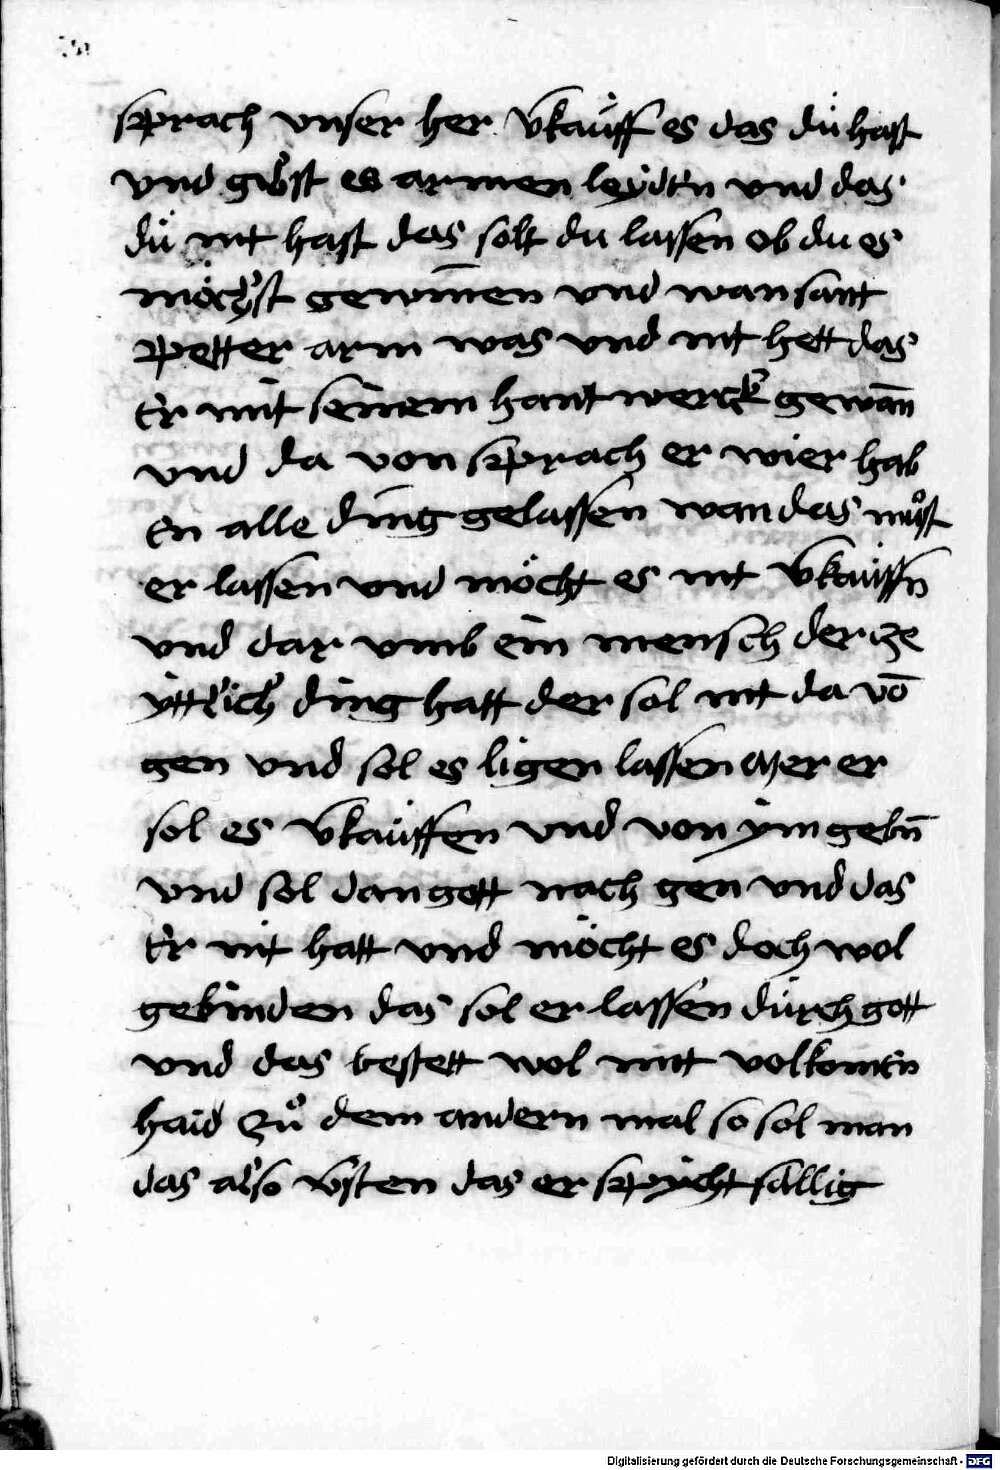 sprach vnser her vkauff es das dü hast
vnd gibst es armen leÿdtn vnd das
dü nit hast das solt du lassen ob du es
möchst gewīnen vnd wan sant
petter arm was vnd nit hett das
Er mit seinem hant werck gewān
vnd da von sprach er wier hab
En alle ding gelassen wan das muͦst
er lassen vnd möcht es nit vkauffn
vnd dar vmb ein mensch der ze
ÿttlich ding hatt der sol nit da vō
gen vnd sol es ligen lassen mer er
sol es vkauffen vnd von ÿm gebn̄
vnd sol dan gott nach gen vnd das
Er nit hatt vnd möcht es doch wol
gebinden das sol er lassen dürch gott
vnd das bestett wol mitt volkomen
haid zuͦ dem andern mal so sol man
das also vsten das er spricht sällig
Digitalisierung gefördert durch die Deutsche Forschungsgemeinschaft - DFG